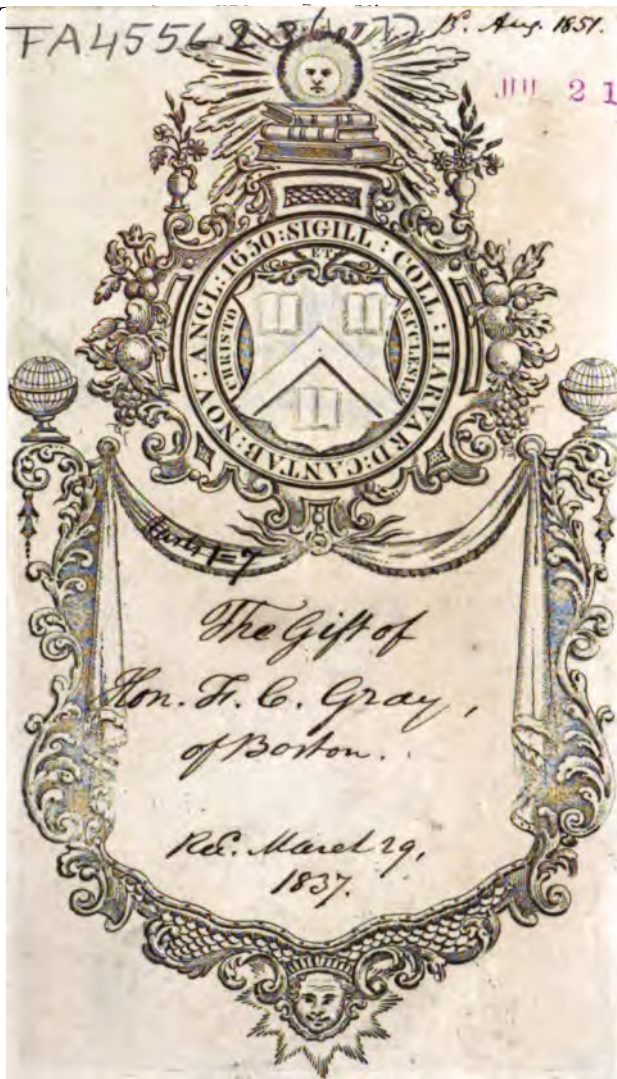 FA4556.2.3
B. Aug. 1851.
JUL 21
SIGILL : COLL : HARVARD : CANTAB : NOV : ANGL : 1650 :
CHRISTO ET ECCLESIÆ
Parts 1=7
The Gift of
Hon. F. C. Gray,
of Boston.
Rec. March 29,
1837.